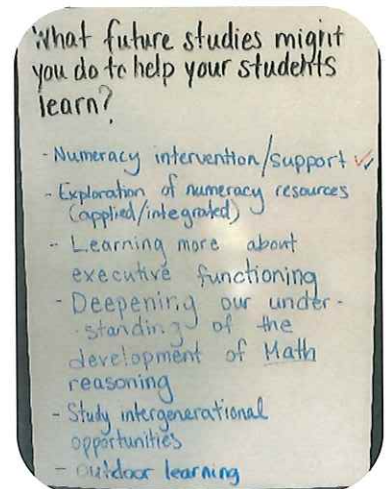 What future studies might
you do to help your students
learn?
- Numeracy intervention/support ✓✓
- Exploration of numeracy resources
(applied/integrated)
- Learning more about
executive functioning
- Deepening our under-
-standing of the
development of Math
reasoning
- Study intergenerational
opportunities
- outdoor learning